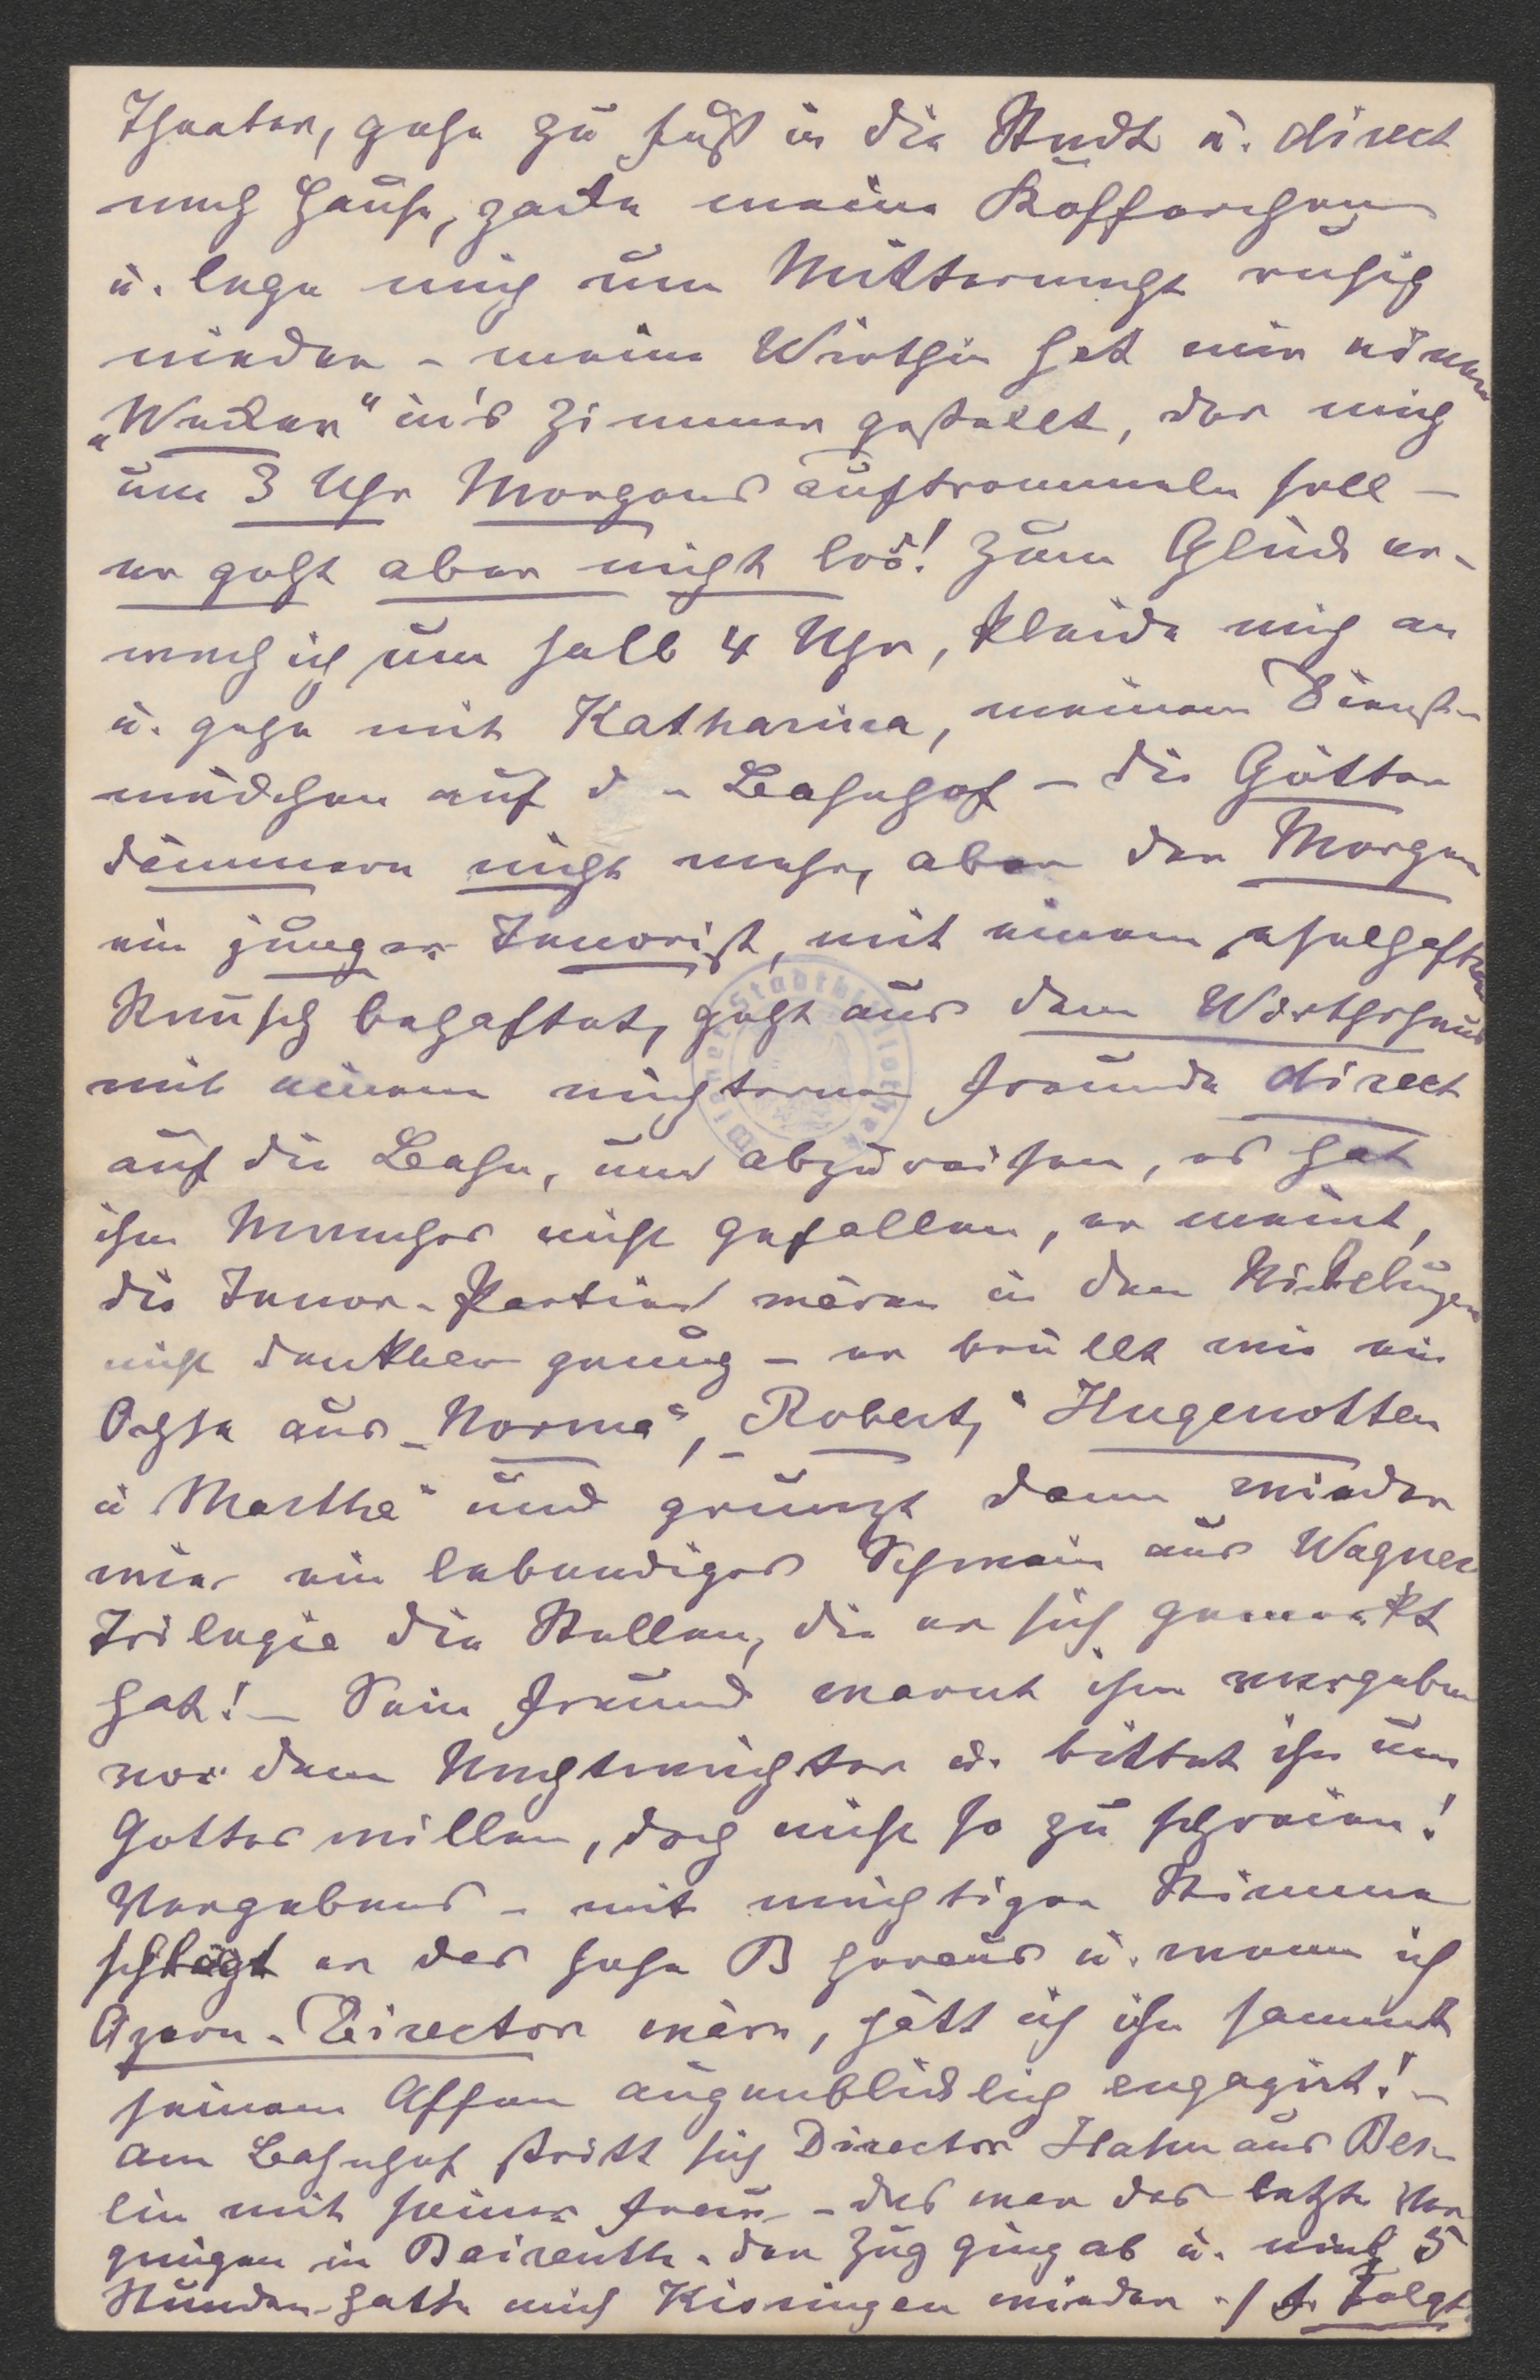 Theater, gehe zu Fuß in die Stadt u. direct
nach Hause, packe meine Kofferchen
u. lege mich um Mitternacht ruhig
nieder – meine Wirthin hat mir einen
„Wecker“ in's Zimmer gestellt, der mich
um 3 Uhr Morgens auftrommeln soll –
er geht aber nicht los! Zum Glück er-
wach ich um halb 4 Uhr, kleide mich an
u. gehe mit Katharina, meinem Dienst-
mädchen auf d n Bahnhof – die Götter
dämmern nicht mehr, aber der Morgen
ein junger Tenorist, mit einem ekelhaften
Rausch behaftet, geht aus dem Wirthshaus
mit einem nüchternen Freunde direct
auf die Bahn, um abzureisen, es hat
ihm Manches nicht gefallen, er meint,
die Tenor-Partien wären in den Nibelungen
nicht dankbar genug – er brüllt wie ein
Ochse aus „Norma“, „Robert,“ Hugenotten
u Martha“ und grunzt dann wieder
wie ein lebendiges Schwein aus Wagner
Trilogie die Stellen, die er sich gemerkt
hat! – Sein Freund warnt ihn vergebens
vor dem Nachtwächter u. bittet ihn um
Gottes willen, doch nicht so zu schreien!
Vergebens – mit mächtiger Stimme
schlägt er das hohe B heraus u. wenn ich
Opern-Director wäre, hätt ich ihn sammt
seinem Affen augenblicklich engagirt! –
Am Bahnhof stritt sich Director Hahn aus Ber-
lin mit seiner Frau – das war das letzte Ver
gnügen in Baireuth. Der Zug ging ab u. nach 5
Stunden hatte mich Kissingen wieder ./ F. Folgt.
Wiener Stadtbibliothek